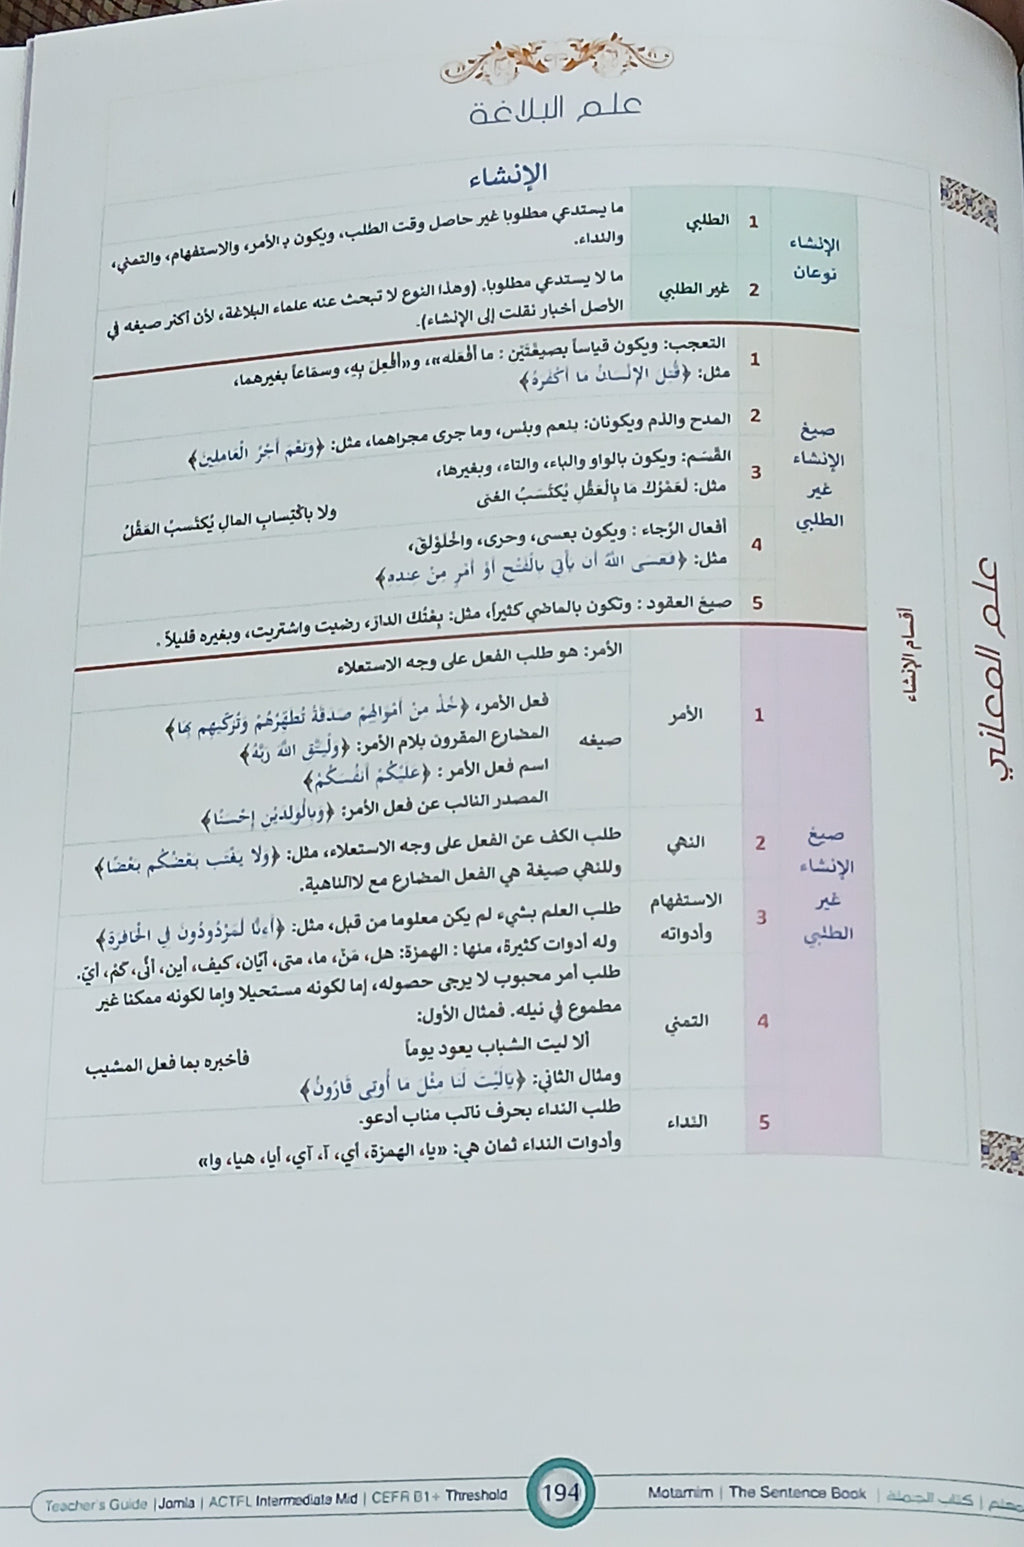 علم البلاغة
الإنشاء
علم المعاني
أقسام الإنشاء
الإنشاء
نوعان
1 الطلبي
ما يستدعي مطلوبا غير حاصل وقت الطلب، ويكون بـ الأمر، والاستفهام، والتمني،
والنداء.
2 غير الطلبي
ما لا يستدعي مطلوبا. (وهذا النوع لا تبحث عنه علماء البلاغة، لأن أكثر صيغه في
الأصل أخبار نقلت إلى الإنشاء).
صيغ
الإنشاء
غير
الطلبي
1 التعجب: ويكون قياساً بصيغَتَيْن : ما أفْعَله»، و«أَفْعِلَ بِهِ، وسمَاعاً بغيرهما،
مثل: ﴿قُتِلَ الإنْسَانُ مَا أَكْفَرَهُ﴾
2 المدح والذم ويكونان: بنعم وبئس، وما جرى مجراهما، مثل: ﴿وَنِعْمَ أَجْرُ الْعَامِلِينَ﴾
3 القَسَم: ويكون بالواو والباء، والتاء، وبغيرها،
مثل: لَعَمْرُكَ مَا بِالْعَقْلِ يُكتَسَبُ الغنى
ولا باكْتِسابِ المالِ يُكتَسبُ العَقْلُ
4 أفعال الرَّجاء : ويكون بعسى، وحرى، واخْلَوْلَقَ،
مثل: ﴿فَعَسَى اللَّهُ أَن يَأْتِيَ بِالْفَتْحِ أَوْ أَمْرٍ مِنْ عِندِهِ﴾
5 صيغ العقود : وتكون بالماضي كثيراً، مثل: بِعْتُكَ الدارَ، رضيت واشتريت، وبغيره قليلاً .
صيغ
الإنشاء
غير
الطلبي
1 الأمر
الأمر: هو طلب الفعل على وجه الاستعلاء
صيغه
فعل الأمر، ﴿خُذْ مِنْ أَمْوَالِهِمْ صَدَقَةً تُطَهِّرُهُمْ وَتُزَكِّيهِم بِهَا﴾
المضارع المقرون بلام الأمر: ﴿وَلْيَتَّقِ اللَّهَ رَبَّهُ﴾
اسم فعل الأمر : ﴿عَلَيْكُمْ أَنفُسَكُمْ﴾
المصدر النائب عن فعل الأمر: ﴿وَبِالْوَلِدَيْنِ إِحْسَنًا﴾
2 النهي
طلب الكف عن الفعل على وجه الاستعلاء، مثل: ﴿وَلا يَغْتَب بَعْضُكُم بَعْضًا﴾
وللنهي صيغة هي الفعل المضارع مع لا الناهية.
3 الاستفهام
وأدواته
طلب العلم بشيء لم يكن معلوما من قبل، مثل: ﴿أَءِنَّا لَمَرْدُودُونَ فِي الْحَافِرَةِ﴾
وله أدوات كثيرة، منها : الهمزة: هل، مَنْ، ما، متى، أيّان، كيف، أين، أنّى، كمْ، أيّ.
4 التمني
طلب أمر محبوب لا يرجى حصوله، إما لكونه مستحيلا وإما لكونه ممكنا غير
مطموع في نيله. فمثال الأول:
ألا ليت الشباب يعود يوماً
فأخبره بما فعل المشيب
ومثال الثاني: ﴿يَالَيْتَ لَنَا مِثْلَ مَا أُوتِيَ قَارُونُ﴾
5 النداء
طلب النداء بحرف نائب مناب أدعو.
وأدوات النداء ثمان هي: «يا، الهمزة، أي، آ، آي، أيا، هيا، وا»
Teacher's Guide | Jomla | ACTFL Intermediate Mid | CEFR B1+ Threshold
194
Motamim | The Sentence Book | كتاب الجملة |